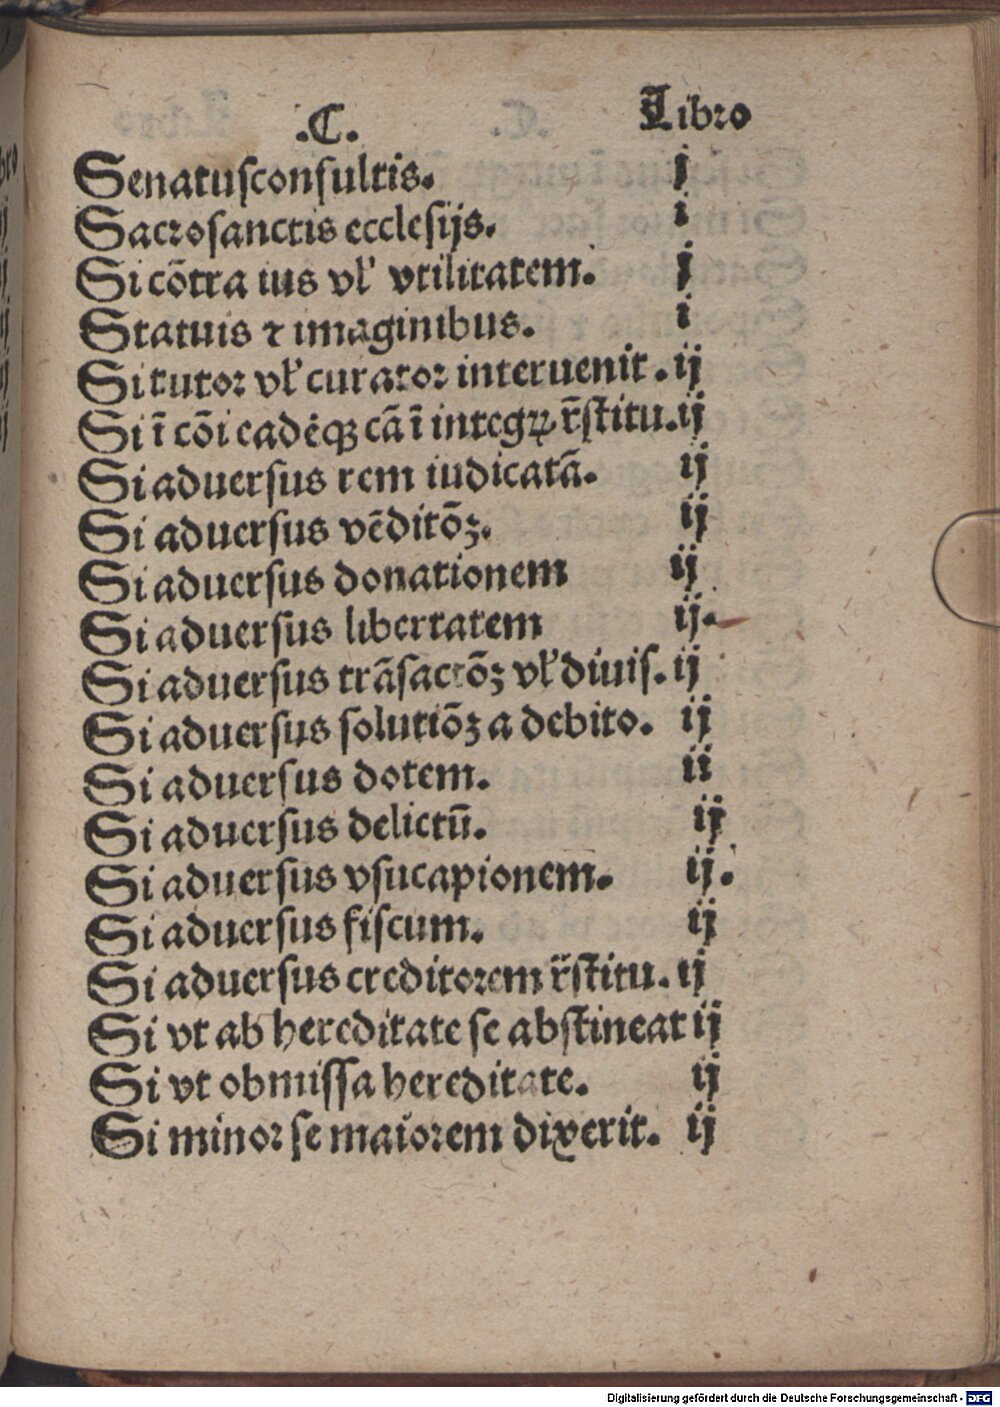 .C. Libro
Senatuſconſultis. j
Sacroſanctis eccleſijs. i
Si cõtra ius vl' vtilitatem. j
Statuis ⁊ imaginibus. i
Si tutor vl' curator interuenit. ij
Si ĩ cõi eadẽqꝫ cã ĩ integꝝ r̃ſtitu. ij
Si aduerſus rem iudicatã. ij
Si aduerſus vẽditõꝫ. ij
Si aduerſus donationem ij
Si aduerſus libertatem ij.
Si aduerſus trãſactõꝫ vl' diuiſ. ij
Si aduerſus ſolutiõꝫ a debito. ij
Si aduerſus dotem. ii
Si aduerſus delictũ. ij
Si aduerſus vſucapionem. ij.
Si aduerſus fiſcum. ij
Si aduerſus creditorem r̃ſtitu. ij
Si vt ab hereditate ſe abſtineat ij
Si vt obmiſſa hereditate. ij
Si minor ſe maiorem dixerit. ij
Digitalisierung gefördert durch die Deutsche Forschungsgemeinschaft - DFG